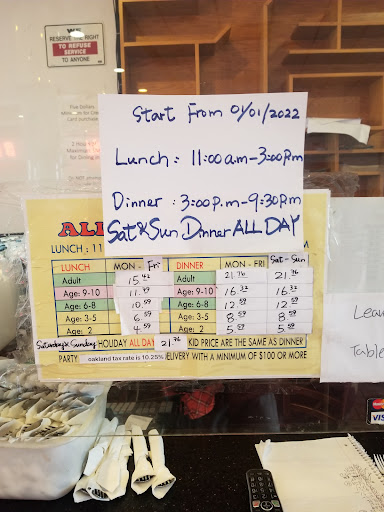 WE
RESERVE THE RIGHT
TO REFUSE
SERVICE
TO ANYONE
Five Dollars
Start From 01/01/2022
Lunch: 11:00 a.m-3:00 p.m
Dinner: 3:00 p.m-9:30 p.m
Sat & Sun Dinner ALL DAY
ALL
LUNCH: 11
LUNCH MON - Fri DINNER MON - FRI Sat - Sun
Adult 15.42 Adult 21.76 21.76
Age: 9-10 Age: 9-10 16.32 16.32
Age: 6-8 10.59 Age: 6-8 12.59 12.59
Age: 3-5 6.59 Age: 3-5 8.59 8.59
Age: 2 4.59 Age: 2 5.59 5.59
Saturday & Sunday HOLIDAY ALL DAY 21.76 KID PRICE ARE THE SAME AS DINNER
PARTY oakland tax rate is 10.25% DELIVERY WITH A MINIMUM OF $100 OR MORE
Table
VIS